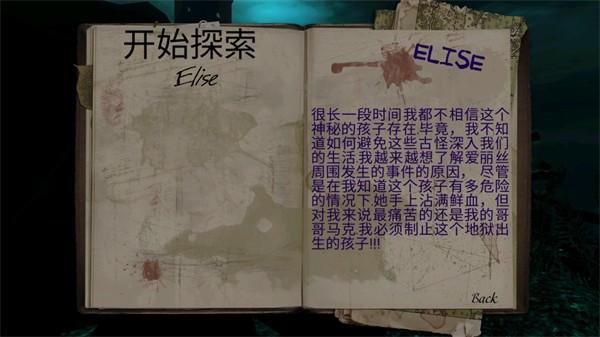 开始探索
Elise
ELISE
很长一段时间我都不相信这个
神秘的孩子存在.毕竟，我不知
道如何避免这些古怪深入我们
的生活.我越来越想了解爱丽丝
周围发生的事件的原因，尽管
是在我知道这个孩子有多危险
的情况下.她手上沾满鲜血，但
对我来说最痛苦的还是我的哥
哥马克.我必须制止这个地狱出
生的孩子!!!
Back